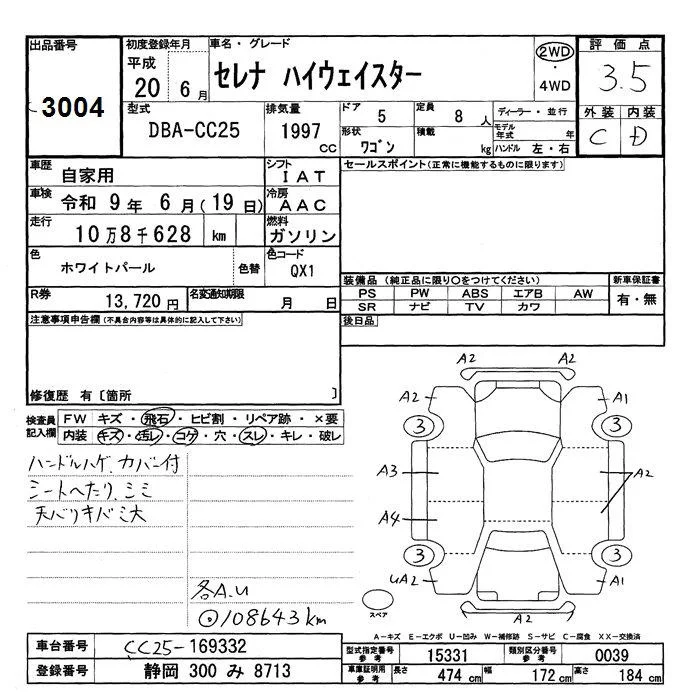 出品番号 3004
初度登録年月 平成 20 6月
車名・グレード セレナ ハイウェイスター
2WD・4WD
評価点 3.5
外装 内装
C D
型式 DBA-CC25
排気量 1997 CC
ドア 5
定員 8 人
ディーラー・並行
形状 ワゴン
積載 kg
モデル年式 年
ハンドル 左・右
車歴 自家用
シフト IAT
セールスポイント(正常に機能するものに限ります)
車検 令和 9年 6月(19日)
冷房 AAC
走行 10万8千628 km
燃料 ガソリン
色 ホワイトパール
色替
色コード QX1
装備品 (純正品に限り○をつけてください)
新車保証書
PS PW ABS エアB AW
有・無
SR ナビ TV カワ
R券 13,720円
名変通知期限 月 日
後日品
注意事項申告欄 (不具合内容等は具体的に記入して下さい)
修復歴 有〔箇所 〕
検査員記入欄
FW キズ・飛石・ヒビ割・リペア跡・×要
内装 キズ・汚レ・コゲ・穴・スレ・キレ・破レ
ハンドルハゲ、カバー付
シートへたり、シミ
天バリキバミ大
各A.U
108643km
A2 A2
A2 A1
3 3
A3 A2
A4
3 3
UA2 A1
A2
スペア
A−キズ E−エクボ U−凹み W−補修跡 S−サビ C−腐食 XX−交換済
車台番号 CC25-169332
登録番号 静岡 300 み 8713
型式指定番号 参考 15331
類別区分番号 参考 0039
車庫証明用 参考 長さ 474 cm 幅 172 cm 高さ 184 cm